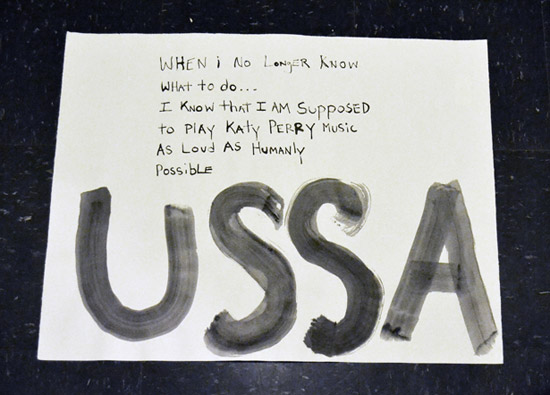 WHEN i No LongER Know
WHAT to do...
I Know that I AM SuppoSED
to PlAY KAty PERRY Music
AS LouD AS HumAnly
PoSSiblE
USSA